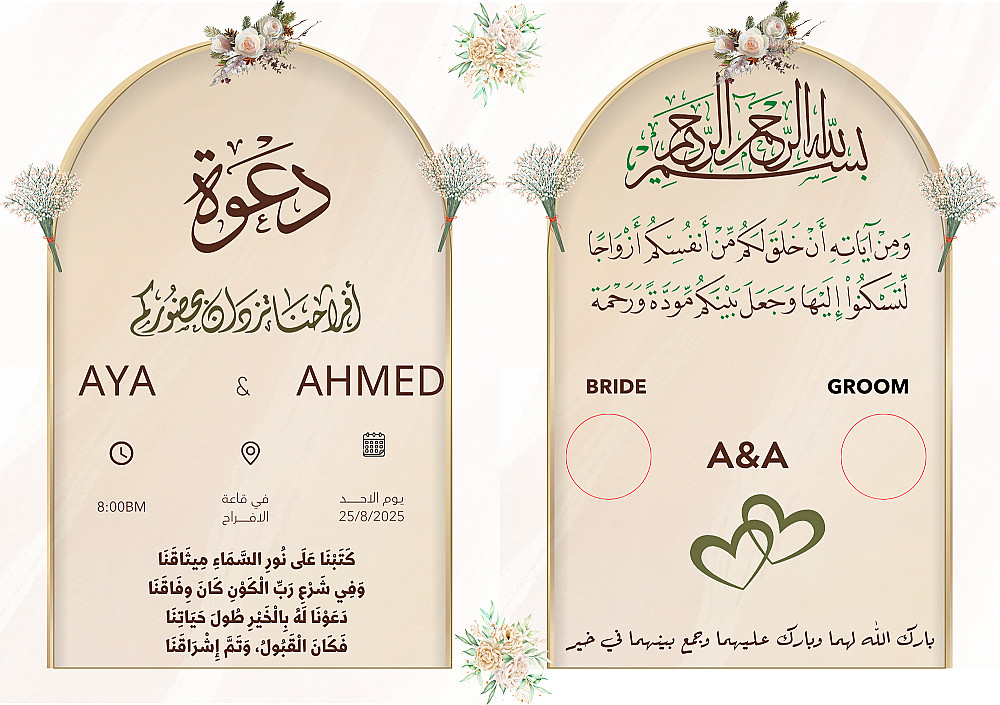 دعوة
أفراحنا تزدان بحضوركم
AYA & AHMED
8:00BM
في قاعة
الافـــراح
يوم الاحـــد
25/8/2025
كَتَبْنَا عَلَى نُورِ السَّمَاءِ مِيثَاقَنَا
وَفِي شَرْعِ رَبِّ الْكَوْنِ كَانَ وِفَاقَنَا
دَعَوْنَا لَهُ بِالْخَيْرِ طُولَ حَيَاتِنَا
فَكَانَ الْقَبُولُ، وَتَمَّ إِشْرَاقَنَا
بسم الله الرحمن الرحيم
وَمِنْ آيَاتِهِ أَنْ خَلَقَ لَكُم مِّنْ أَنفُسِكُمْ أَزْوَاجًا
لِّتَسْكُنُوا إِلَيْهَا وَجَعَلَ بَيْنَكُم مَّوَدَّةً وَرَحْمَة
BRIDE
GROOM
A&A
بارك الله لهما وبارك عليهما وجمع بينهما في خير